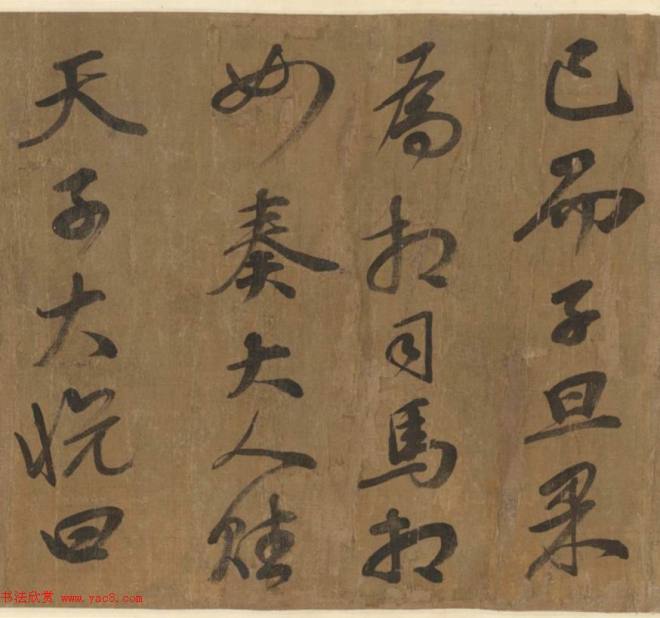 已而子旦果
為相司馬相
如奏大人賦
天子大悅曰
书法欣赏 www.yac8.com